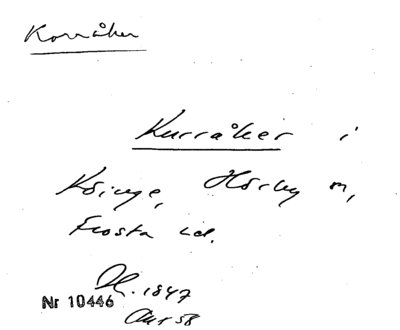 Korråker
Kurråker i
Köinge, Hörby sn,
Frosta hd.
Dl. 1847
Nr 10446
Akt 58